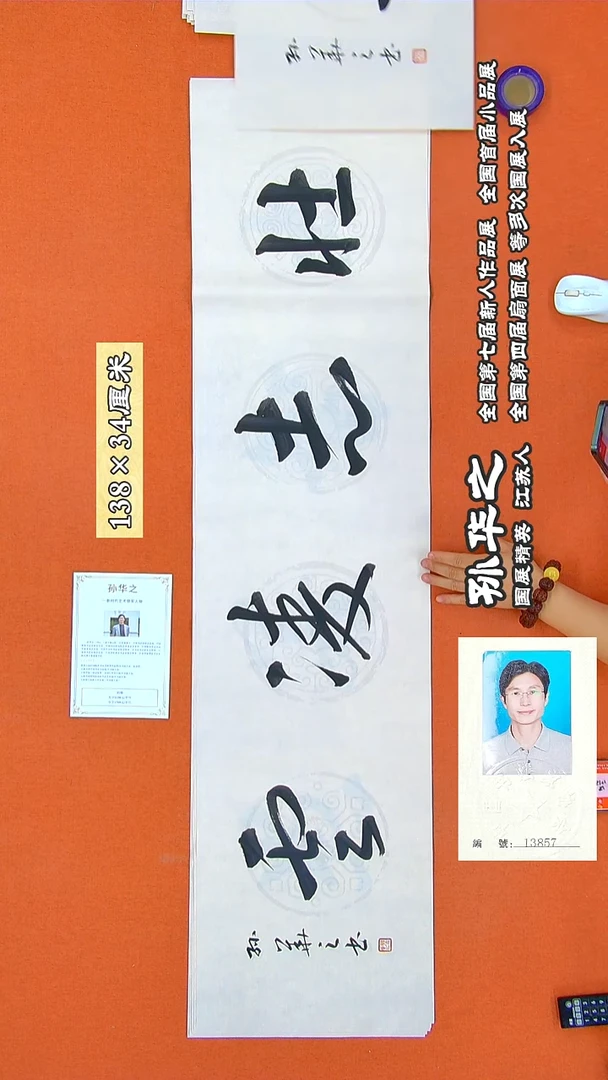 孙華之书
壮志凌云
孙華之书
138×34厘米
孙华之
国展精英 江苏人
全国第七届新人作品展 全国首届小品展
全国第四届扇面展 等多次国展入展
孙华之
編 號: 13857